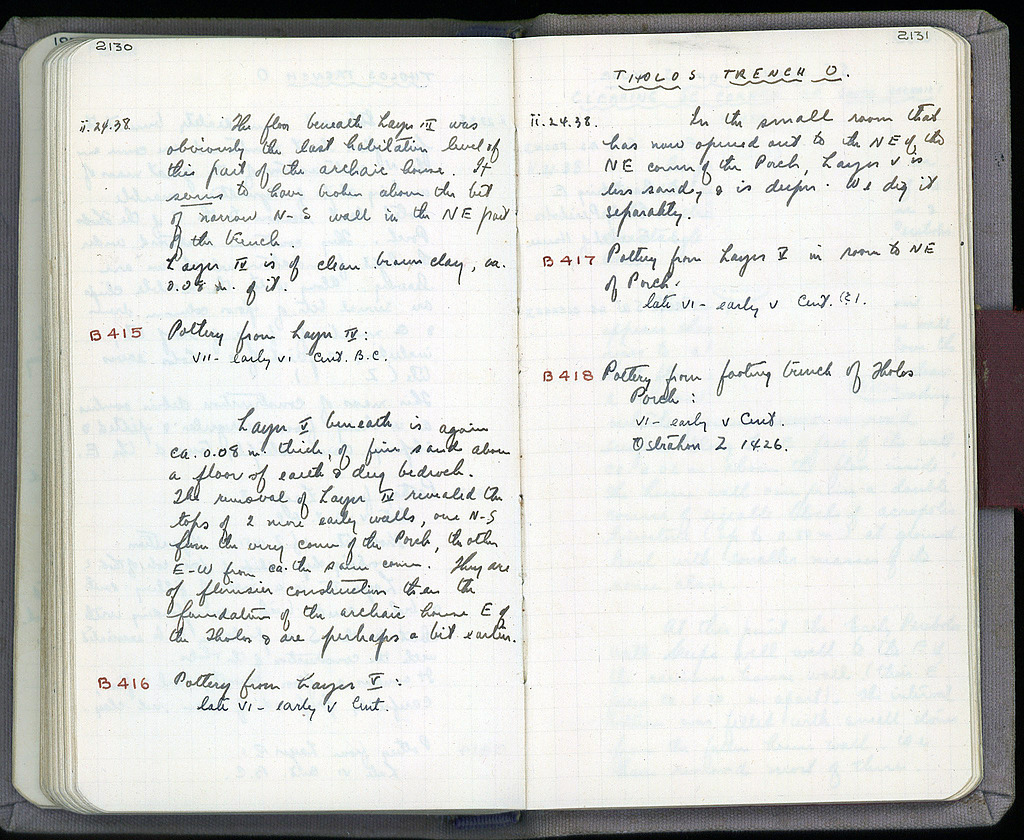 2130
ii.24.38
The floor beneath Layer II was
obviously the last habitation level of
this part of the archaic house. It
seems to have broken above the bit
of narrow N-S wall in the NE part
of the trench.
Layer IV is of clean brown clay, ca.
0.08 m. of it.
B 415 Pottery from Layer IV:
VII - early VI Cent. B.C.
Layer V beneath is again
ca. 0.08 m. thick, of fine sand above
a floor of earth & dug bedrock.
The removal of Layer IV revealed the
tops of 2 more early walls, one N-S
from the very corner of the Porch, the other
E-W from ca. the same corner. They are
of flimsier construction than the
foundation of the archaic house E of
the Tholos & are perhaps a bit earlier.
B 416 Pottery from Layer V:
late VI - early V Cent.
2131
THOLOS TRENCH O.
ii.24.38.
In the small room that
has now opened out to the NE of the
NE corner of the Porch, Layer V is
less sandy, & is deeper. We dig it
separately.
B 417 Pottery from Layer V in room to NE
of Porch.
late VI - early V Cent.
B 418 Pottery from footing trench of Tholos
Porch:
VI - early V Cent.
Ostrakon Z 1426.